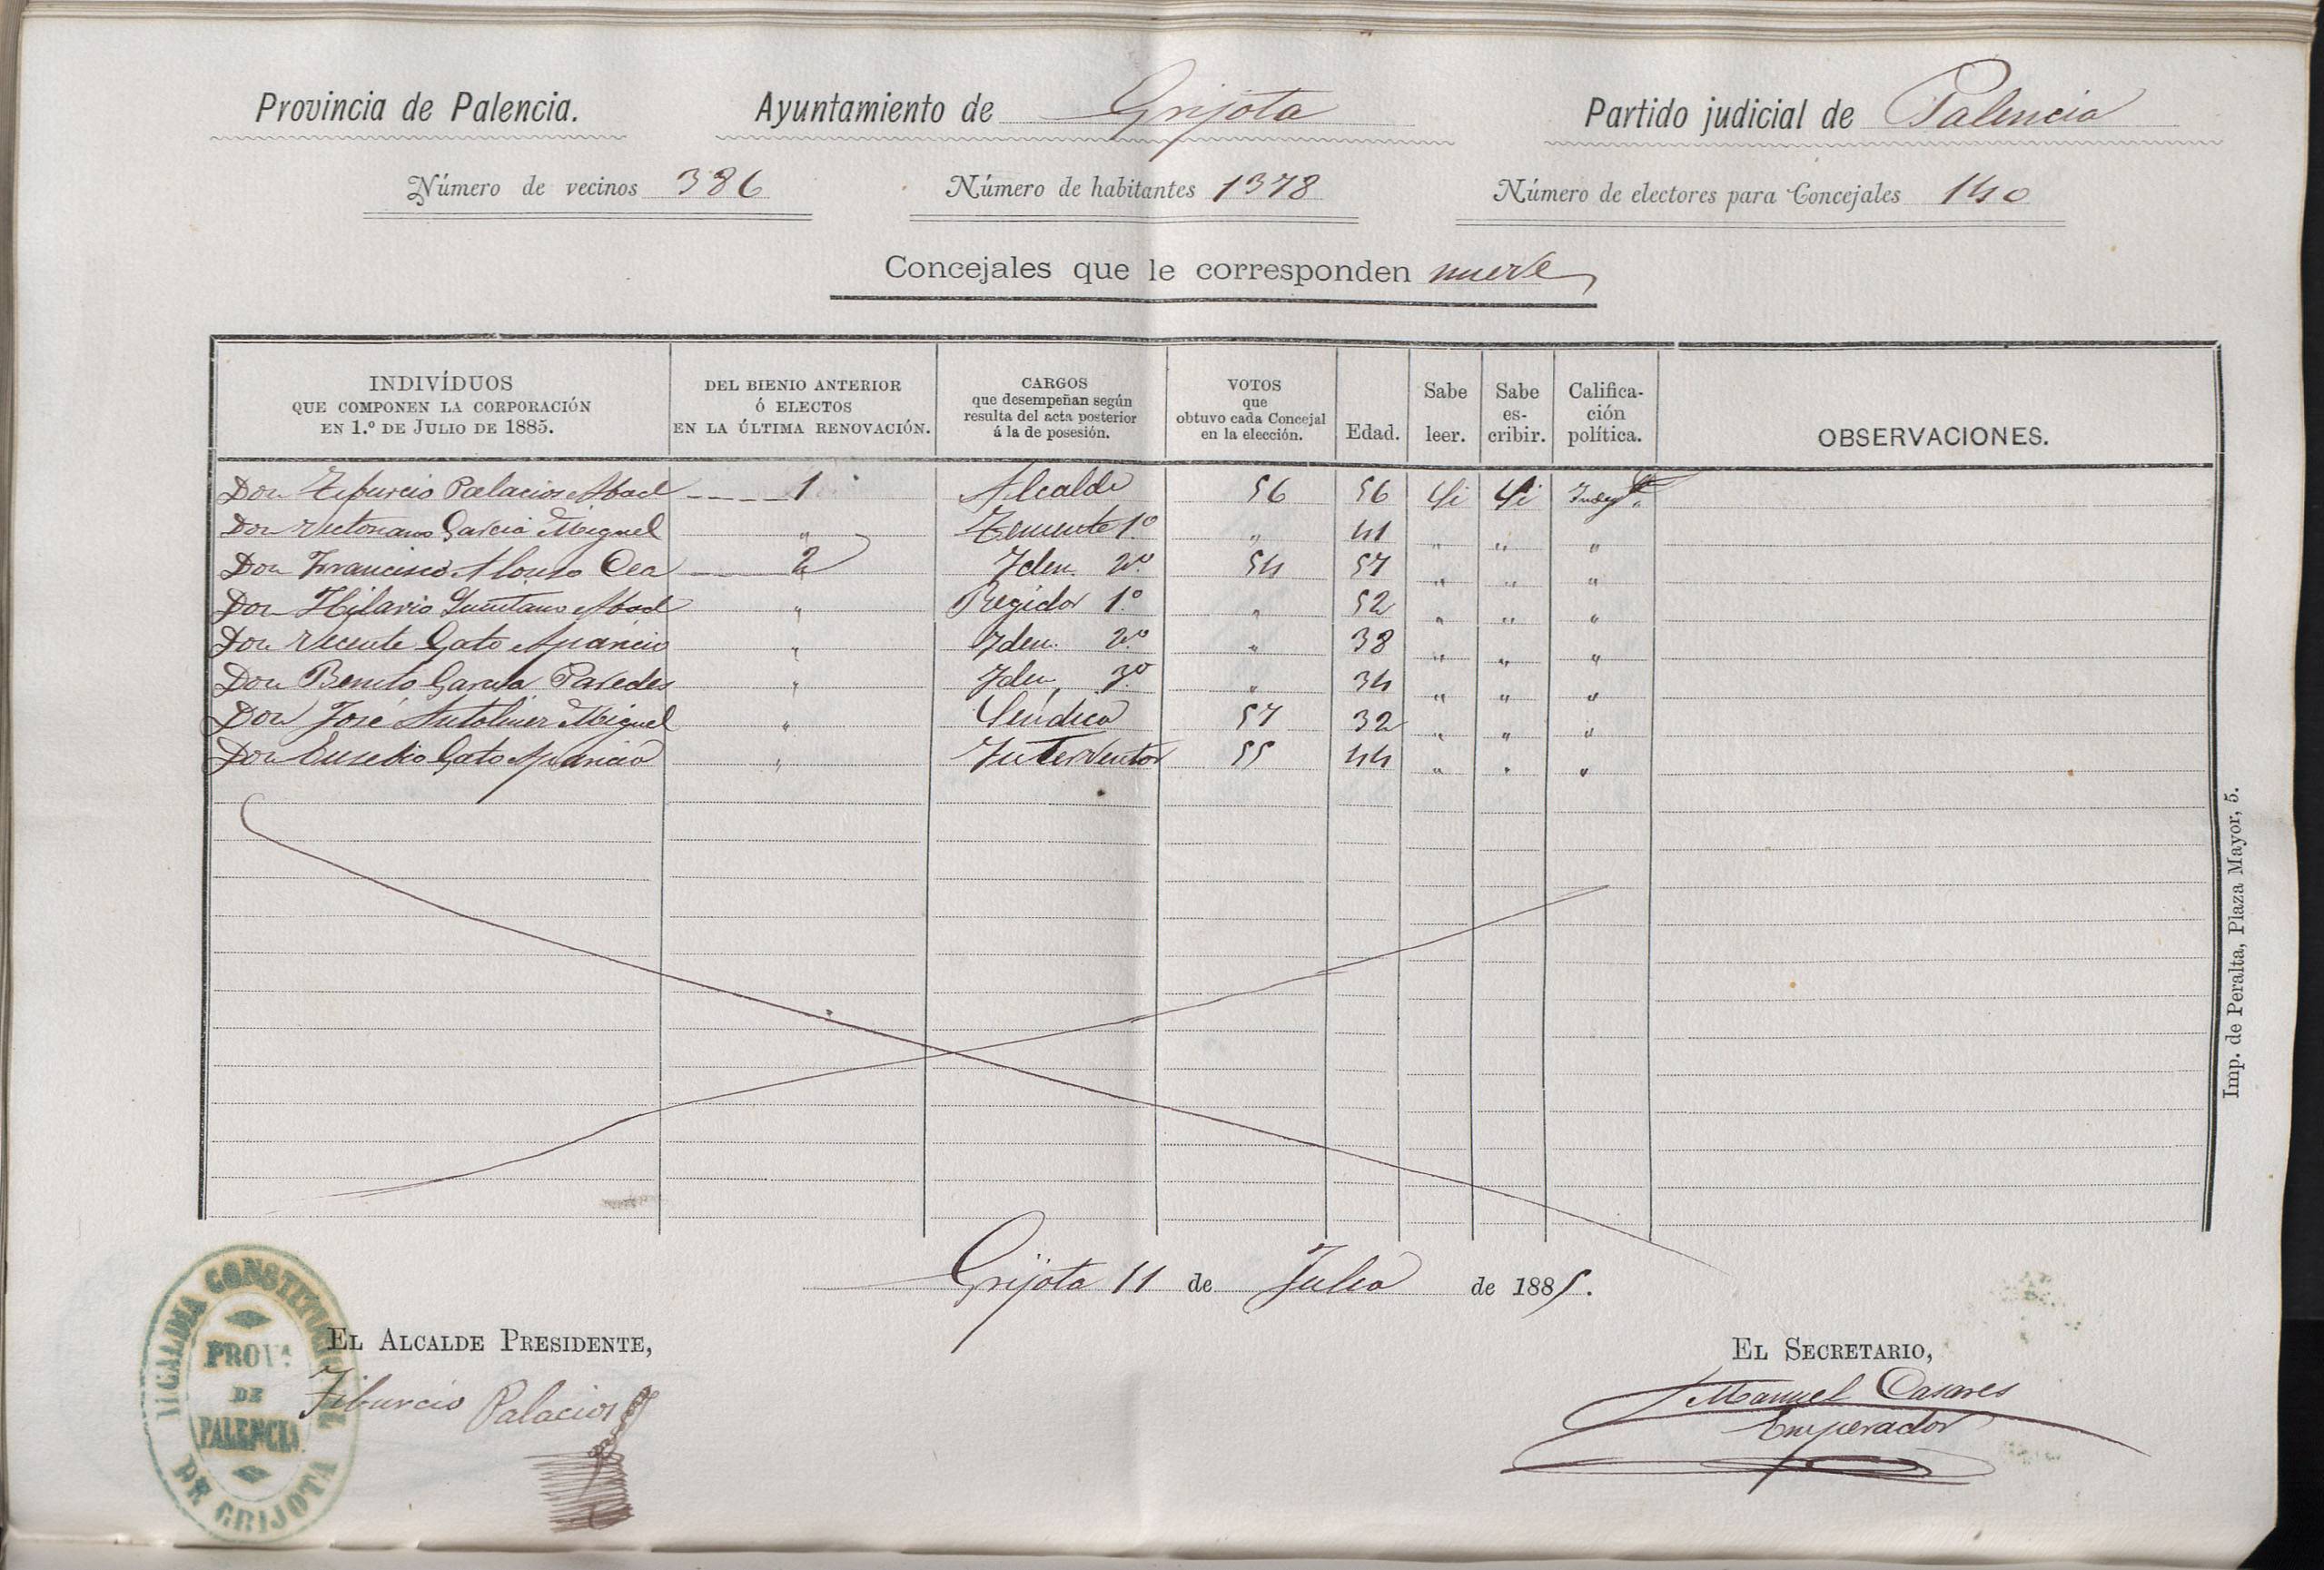 Provincia de Palencia. Ayuntamiento de Grijota Partido judicial de Palencia
Número de vecinos 386 Número de habitantes 1378 Número de electores para Concejales 140
Concejales que le corresponden nueve
INDIVÍDUOS QUE COMPONEN LA CORPORACIÓN EN 1.º DE JULIO DE 1885. DEL BIENIO ANTERIOR Ó ELECTOS EN LA ÚLTIMA RENOVACIÓN. CARGOS que desempeñan según resulta del acta posterior á la de posesión. VOTOS que obtuvo cada Concejal en la elección. Edad. Sabe leer. Sabe es- cribir. Califica- ción política. OBSERVACIONES.
Don Tiburcio Palacios Abad 1 Alcalde 56 56 Si Si
Don Victoriano Garcia Miguel " Teniente 1º " 41 " " "
Don Francisco Alonso Cea 2 Iden. 2º 54 57 " " "
Don Hilario Quintano Abad " Regidor 1º " 52 " " "
Don Vicente Gato Aparicio " Iden. 2º " 38 " " "
Don Benito Garcia Paredes " Iden 3º " 34 " " "
Don José Antolinez Miguel " Síndico 57 32 " " "
Don Eusebio Gato Aparicio " Interventor 55 44 " " "
Grijota 11 de Julio de 1885.
EL ALCALDE PRESIDENTE,
Tiburcio Palacios
EL SECRETARIO,
Manuel Casares
Emperador
ALCALDIA CONSTITUCIONAL DE GRIJOTA
PROVª
DE
PALENCIA
Imp. de Peralta, Plaza Mayor, 5.